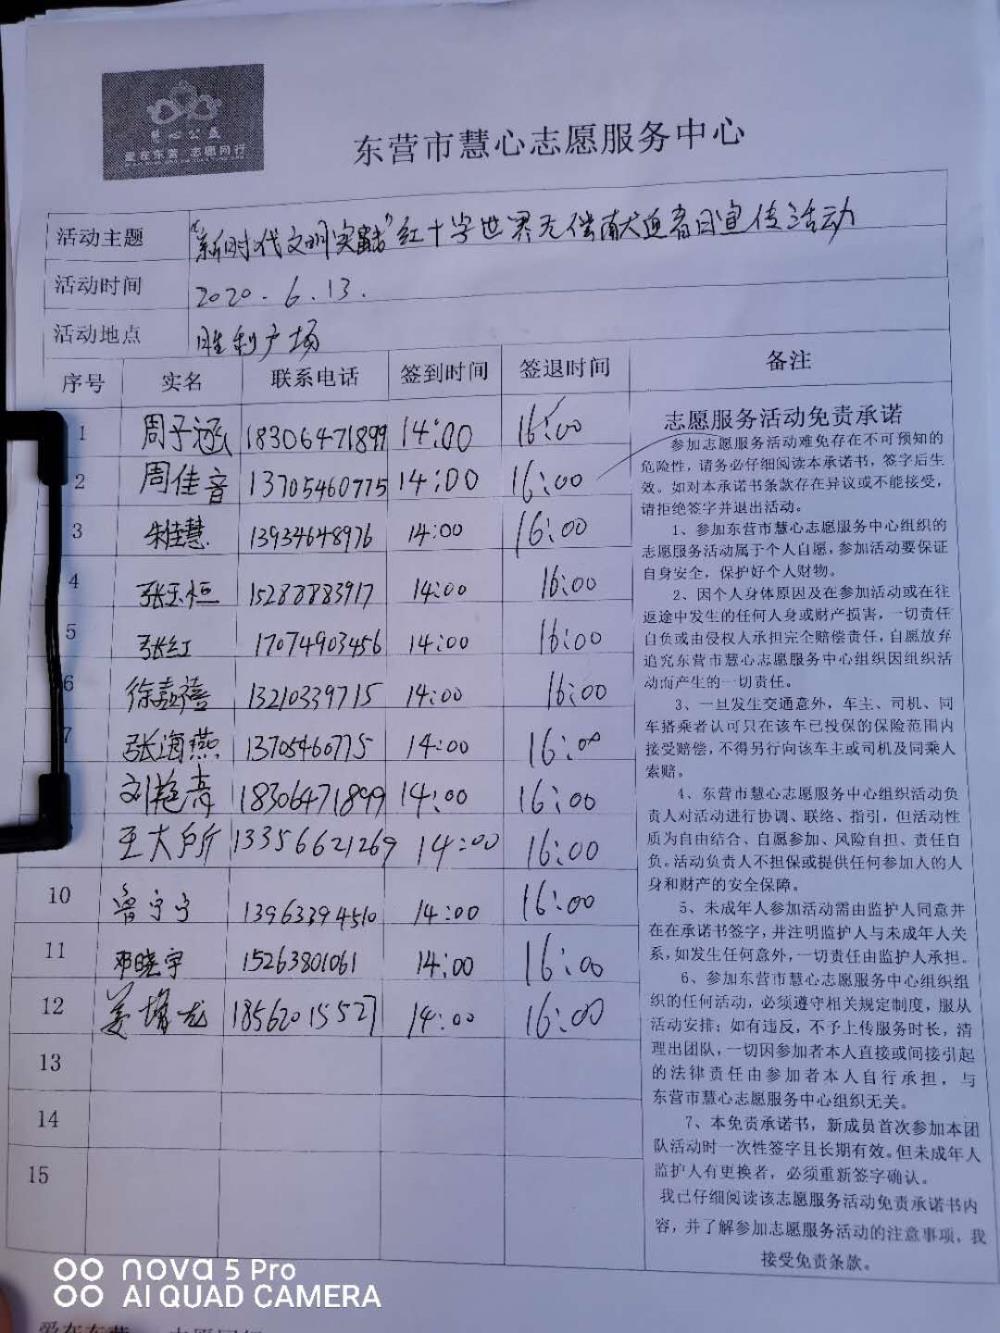 慧心公益
爱在东营 志愿同行
东营市慧心志愿服务中心
活动主题 "新时代文明实践"红十字世界无偿献血者日宣传活动
活动时间 2020.6.13.
活动地点 胜利广场
序号 实名 联系电话 签到时间 签退时间 备注
1 周子涵 18306471899 14:00 16:00
2 周佳音 13705460775 14:00 16:00
3 朱佳慧 13934648976 14:00 16:00
4 张玉恒 15288883917 14:00 16:00
5 张红 17074903456 14:00 16:00
6 徐嘉禧 13210339715 14:00 16:00
7 张海燕 13705460775 14:00 16:00
刘艳青 18306471899 14:00 16:00
王大所 13356621269 14:00 16:00
10 鲁宁宁 13963394510 14:00 16:00
11 邓晓宇 15263801061 14:00 16:00
12 姜 龙 18562015527 14:00 16:00
13
14
15
志愿服务活动免责承诺
参加志愿服务活动难免存在不可预知的
危险性，请务必仔细阅读本承诺书，签字后生
效。如对本承诺书条款存在异议或不能接受，
请拒绝签字并退出活动。
1、参加东营市慧心志愿服务中心组织的
志愿服务活动属于个人自愿，参加活动要保证
自身安全，保护好个人财物。
2、因个人身体原因及在参加活动或在往
返途中发生的任何人身或财产损害，一切责任
自负或由侵权人承担完全赔偿责任，自愿放弃
追究东营市慧心志愿服务中心组织因组织活
动而产生的一切责任。
3、一旦发生交通意外，车主、司机、同
车搭乘者认可只在该车已投保的保险范围内
接受赔偿，不得另行向该车主或司机及同乘人
索赔。
4、东营市慧心志愿服务中心组织活动负
责人对活动进行协调、联络、指引，但活动性
质为自由结合、自愿参加、风险自担、责任自
负。活动负责人不担保或提供任何参加人的人
身和财产的安全保障。
5、未成年人参加活动需由监护人同意并
在在承诺书签字，并注明监护人与未成年人关
系，如发生任何意外，一切责任由监护人承担。
6、参加东营市慧心志愿服务中心组织组
织的任何活动，必须遵守相关规定制度，服从
活动安排；如有违反，不予上传服务时长，清
理出团队，一切因参加者本人直接或间接引起
的法律责任由参加者本人自行承担，与
东营市慧心志愿服务中心组织无关。
7、本免责承诺书，新成员首次参加本团
队活动时一次性签字且长期有效。但未成年人
监护人有更换者，必须重新签字确认。
我已仔细阅读该志愿服务活动免责承诺书内
容，并了解参加志愿服务活动的注意事项，我
接受免责条款。
nova 5 Pro
AI QUAD CAMERA
爱在东营 志愿同行